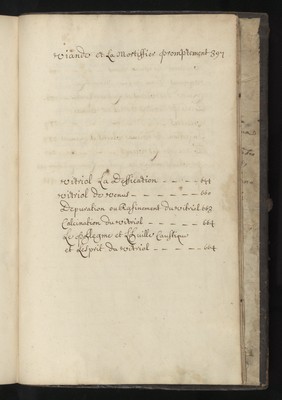 viande et La Mortiffier promptement 397
vitriol La Deffication - - - - - 641
vitriol de venus - - - - - - 660
Depuration ou Rafinement du vitriol 662
Calcination du vitriol - - - - - 664
Le phlegme et L'huille Caustique
et L'esprit du vitriol - - - - - 664